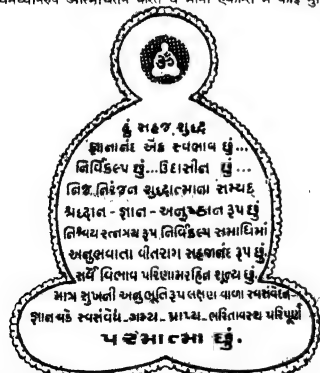 ૐ
હું સહજ શુદ્ધ
જ્ઞાનાનંદ એક સ્વભાવ છું...
નિર્વિકલ્પ છું...ઉદાસીન છું...
નિજ નિરંજન શુદ્ધાત્માના સમ્યદ્
શ્રદ્ધાન - જ્ઞાન - અનુષ્ઠાન રૂપ છું
નિશ્ચય રત્નત્રય રૂપ નિર્વિકલ્પ સમાધિમાં
અનુભવાતા વીતરાગ સહજાનંદ રૂપ છું.
સર્વે વિભાવ પરિણામરહિત શૂન્ય છું.
માત્ર સુખની અનુભૂતિરૂપ લક્ષણ વાળા સ્વસંવેદન-
જ્ઞાન વડે સ્વસંવેદ્ય-ગમ્ય - પ્રાપ્ય -ભરિતાવસ્થ પરિપૂર્ણ
પરમાત્મા છું.